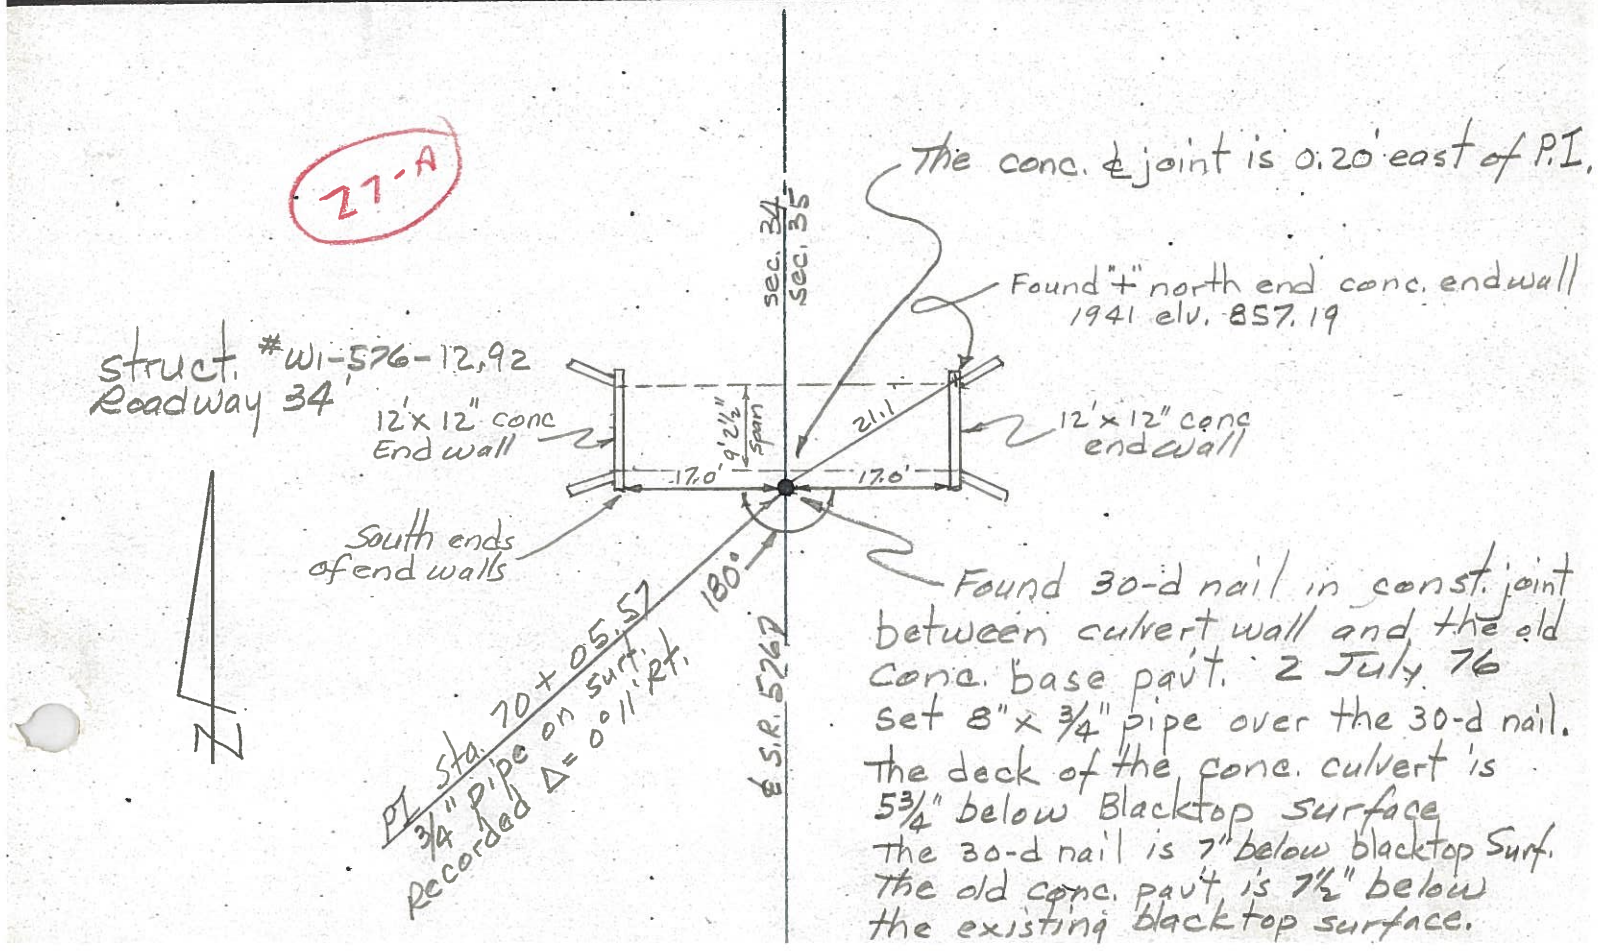 27-A
The conc. ℄ joint is 0.20' east of P.I.
sec. 34
sec. 35
Found "+" north end conc. endwall
1941 elv. 857.19
struct. #WI-576-12.92
Roadway 34'
12'x 12" conc
End wall
9'2½"
span
21.1'
12'x 12" conc
endwall
17.0'
17.0'
South ends
of end walls
180°
PI Sta. 70 + 05.57
3/4" pipe on surf.
Recorded Δ= 0°11' Rt.
℄ S.R. 576
N
Found 30-d nail in const. joint
between culvert wall and the old
Conc. base pav't. 2 July 76
set 8" x 3/4" pipe over the 30-d nail.
The deck of the conc. culvert is
5 3/4" below Blacktop surface
The 30-d nail is 7" below blacktop Surf.
The old conc. pav't is 7½" below
the existing blacktop surface.